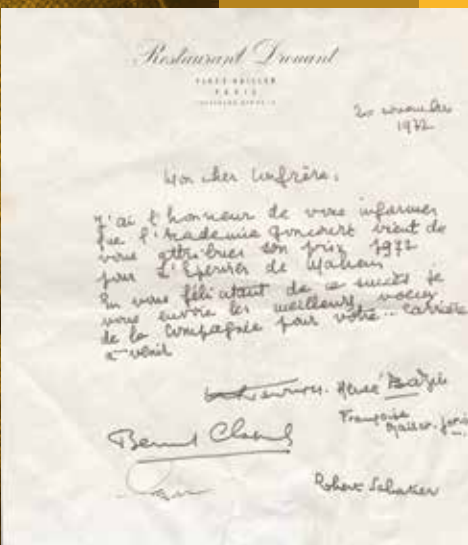 Restaurant Drouant
PLACE GAILLON
PARIS
20 novembre
1972
Mon cher confrère,
J'ai l'honneur de vous informer
que l'Académie Goncourt vient de
vous attribuer son prix 1972
pour L'Epervier de Maheux
En vous félicitant de ce succès je
vous envoie les meilleurs voeux
de la Compagnie pour votre carrière
à venir
Hervé Bazin
Françoise
Mallet-Joris
Bernard Clavel
Robert Sabatier